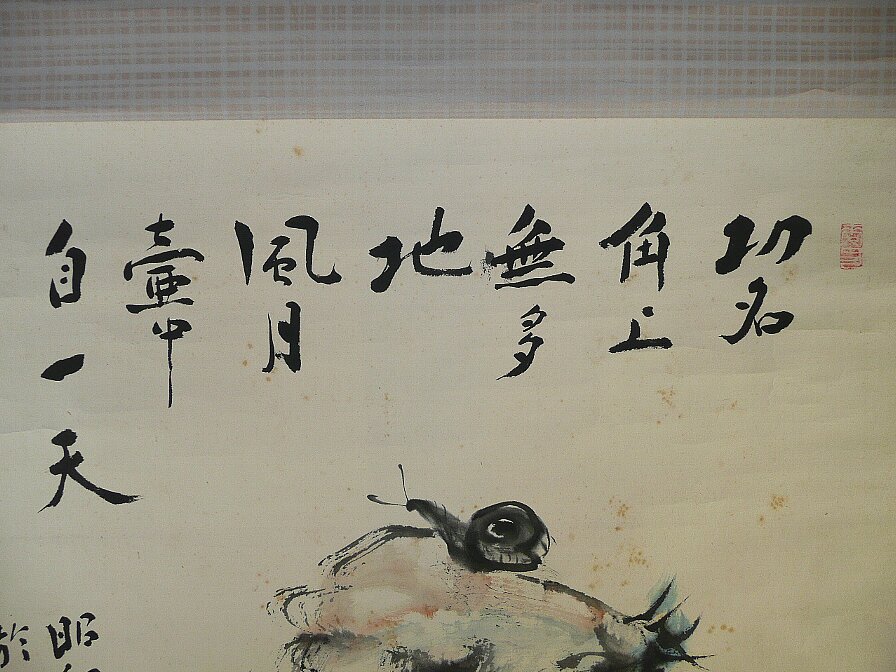 功名
角上
無多
地
風月
壷中
自一天
昭和
於